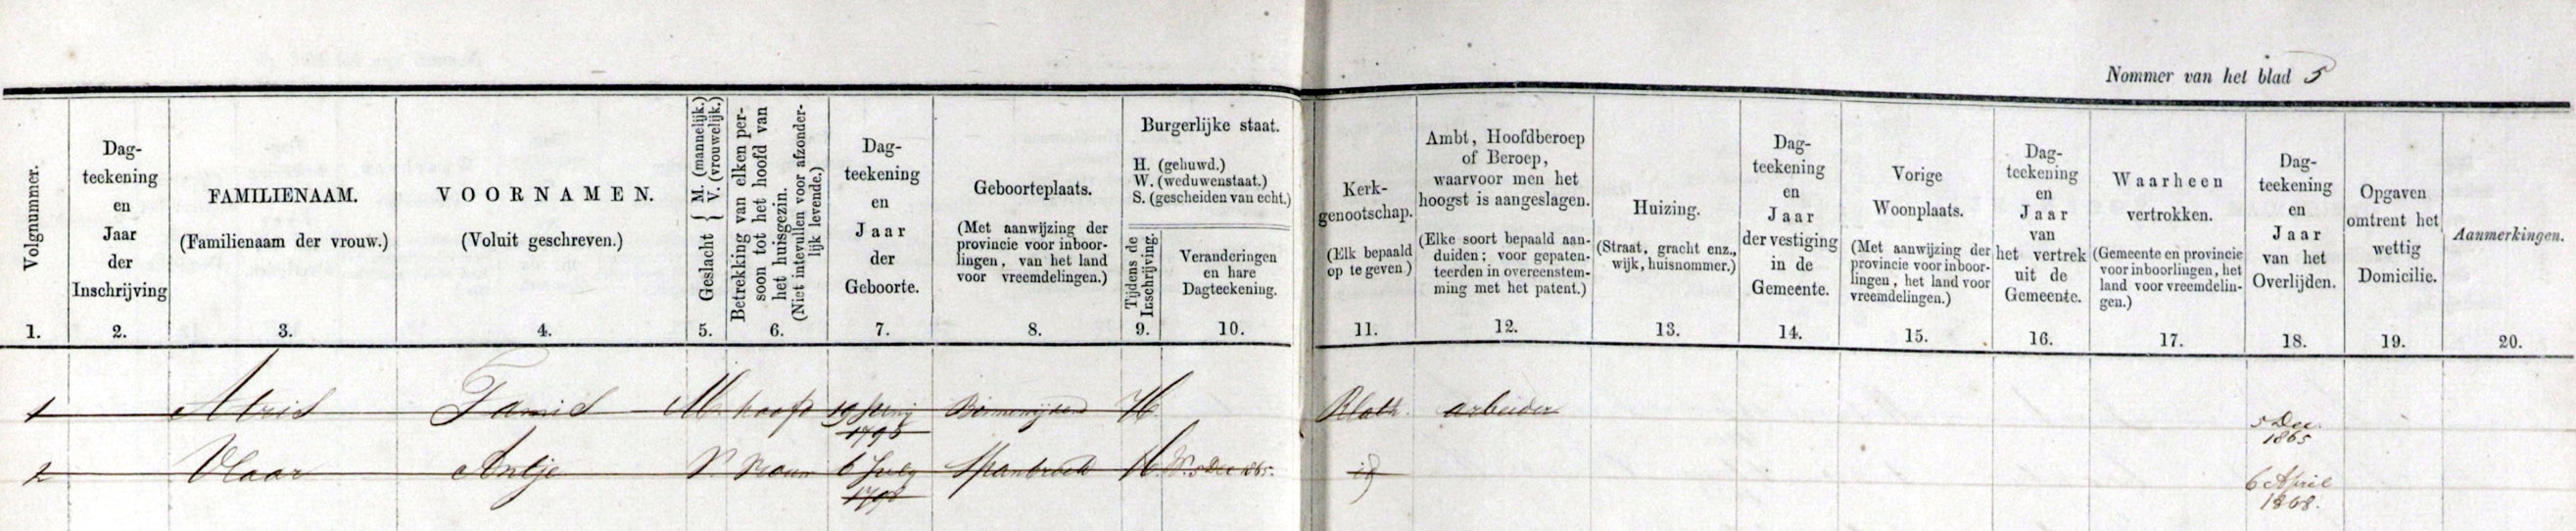 Nommer van het blad 5
Volgnummer.
1.
Dag-
teekening
en
Jaar
der
Inschrijving
2.
FAMILIENAAM.
(Familienaam der vrouw.)
3.
VOORNAMEN.
(Voluit geschreven.)
4.
Geslacht { M. (mannelijk.) V. (vrouwelijk.)
5.
Betrekking van elken per-
soon tot het hoofd van
het huisgezin.
(Niet intevullen voor afzonder-
lijk levende.)
6.
Dag-
teekening
en
Jaar
der
Geboorte.
7.
Geboorteplaats.
(Met aanwijzing der
provincie voor inboor-
lingen, van het land
voor vreemdelingen.)
8.
Burgerlijke staat.
H. (gehuwd.)
W. (weduwenstaat.)
S. (gescheiden van echt.)
Tijdens de
Inschrijving.
9.
Veranderingen
en hare
Dagteekening.
10.
Kerk-
genootschap.
(Elk bepaald
op te geven)
11.
Ambt, Hoofdberoep
of Beroep,
waarvoor men het
hoogst is aangeslagen.
(Elke soort bepaald aan-
duiden; voor gepaten-
teerden in overeenstem-
ming met het patent.)
12.
Huizing.
(Straat, gracht enz.,
wijk, huisnommer.)
13.
Dag-
teekening
en
Jaar
der vestiging
in de
Gemeente.
14.
Vorige
Woonplaats.
(Met aanwijzing der
provincie voor inboor-
lingen, het land voor
vreemdelingen.)
15.
Dag-
teekening
en
Jaar
van
het vertrek
uit de
Gemeente.
16.
Waarheen
vertrokken.
(Gemeente en provincie
voor inboorlingen, het
land voor vreemdelin-
gen.)
17.
Dag-
teekening
en
Jaar
van het
Overlijden.
18.
Opgaven
omtrent het
wettig
Domicilie.
19.
Aanmerkingen.
20.
1 M. hoofd H R Cath. arbeider 5 Dec.
1865
2 Vlaar Antje V. vrouw 6 Spanbroek H W. 5 Dec 1865. id 6 April
1798 1868.